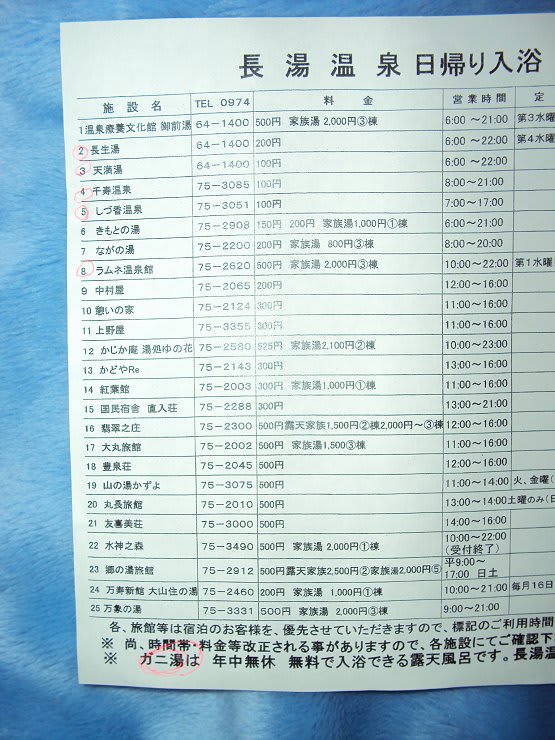 長湯温泉日帰り入浴
施設名 TEL 0974 料金 営業時間 定
1 温泉療養文化館 御前湯 64-1400 500円 家族湯 2,000円③棟 6:00 ~21:00 第3水曜
2 長生湯 64-1400 200円 6:00 ~22:00 第4水曜
3 天満湯 64-1400 100円 6:00 ~22:00
4 千寿温泉 75-3085 100円 8:00~21:00
5 しづ香温泉 75-3051 100円 7:00 ~17:00
6 きもとの湯 75-2908 150円 200円 家族湯1,000円①棟 6:00~21:00
7 ながの湯 75-2200 200円 家族湯 800円③棟 8:00~20:00
8 ラムネ温泉館 75-2620 500円 家族湯 2,000円③棟 10:00~22:00 第1水曜
9 中村屋 75-2065 200円 12:00~16:00
10 憩いの家 75-2124 300円 11:00~16:00
11 上野屋 75-3355 300円 11:00~16:00
12 かじか庵 湯処ゆの花 75-2580 525円 家族湯2,100円②棟 10:00~23:00
13 かどやRe 75-2143 300円 13:00~16:00
14 紅葉館 75-2003 300円 家族湯1,000円①棟 11:00~16:00
15 国民宿舎 直入荘 75-2288 300円 13:00~21:00
16 翡翠之庄 75-2300 500円露天家族1,500円②棟2,000円~③棟 12:00~16:00
17 大丸旅館 75-2002 500円 家族湯1,500③棟 11:00~16:00
18 豊泉荘 75-2045 500円 12:00~16:00
19 山の湯かずよ 75-3075 500円 11:00~14:00 火、金曜(
20 丸長旅館 75-2010 500円 13:00~14:00 土曜のみ(日
21 友喜美荘 75-3000 500円 14:00~16:00
22 水神之森 75-3490 500円 家族湯 2,000円①棟 10:00~22:00 (受付終了)
23 郷の湯旅館 75-2912 500円露天家族2,500円②家族湯2,000円⑤ 平9:00~ 17:00 日土
24 万寿新館 大山住の湯 75-2460 200円 家族湯 1,000円①棟 10:00~21:00 毎月16日
25 万象の湯 75-3331 500円 家族湯 2,000円③棟 9:00~21:00
各、旅館等は宿泊のお客様を、優先させていただきますので、標記のご利用時間
※ 尚、時間帯・料金等改正される事がありますので、各施設にてご確認下
※ ガニ湯は 年中無休 無料で入浴できる露天風呂です。長湯温